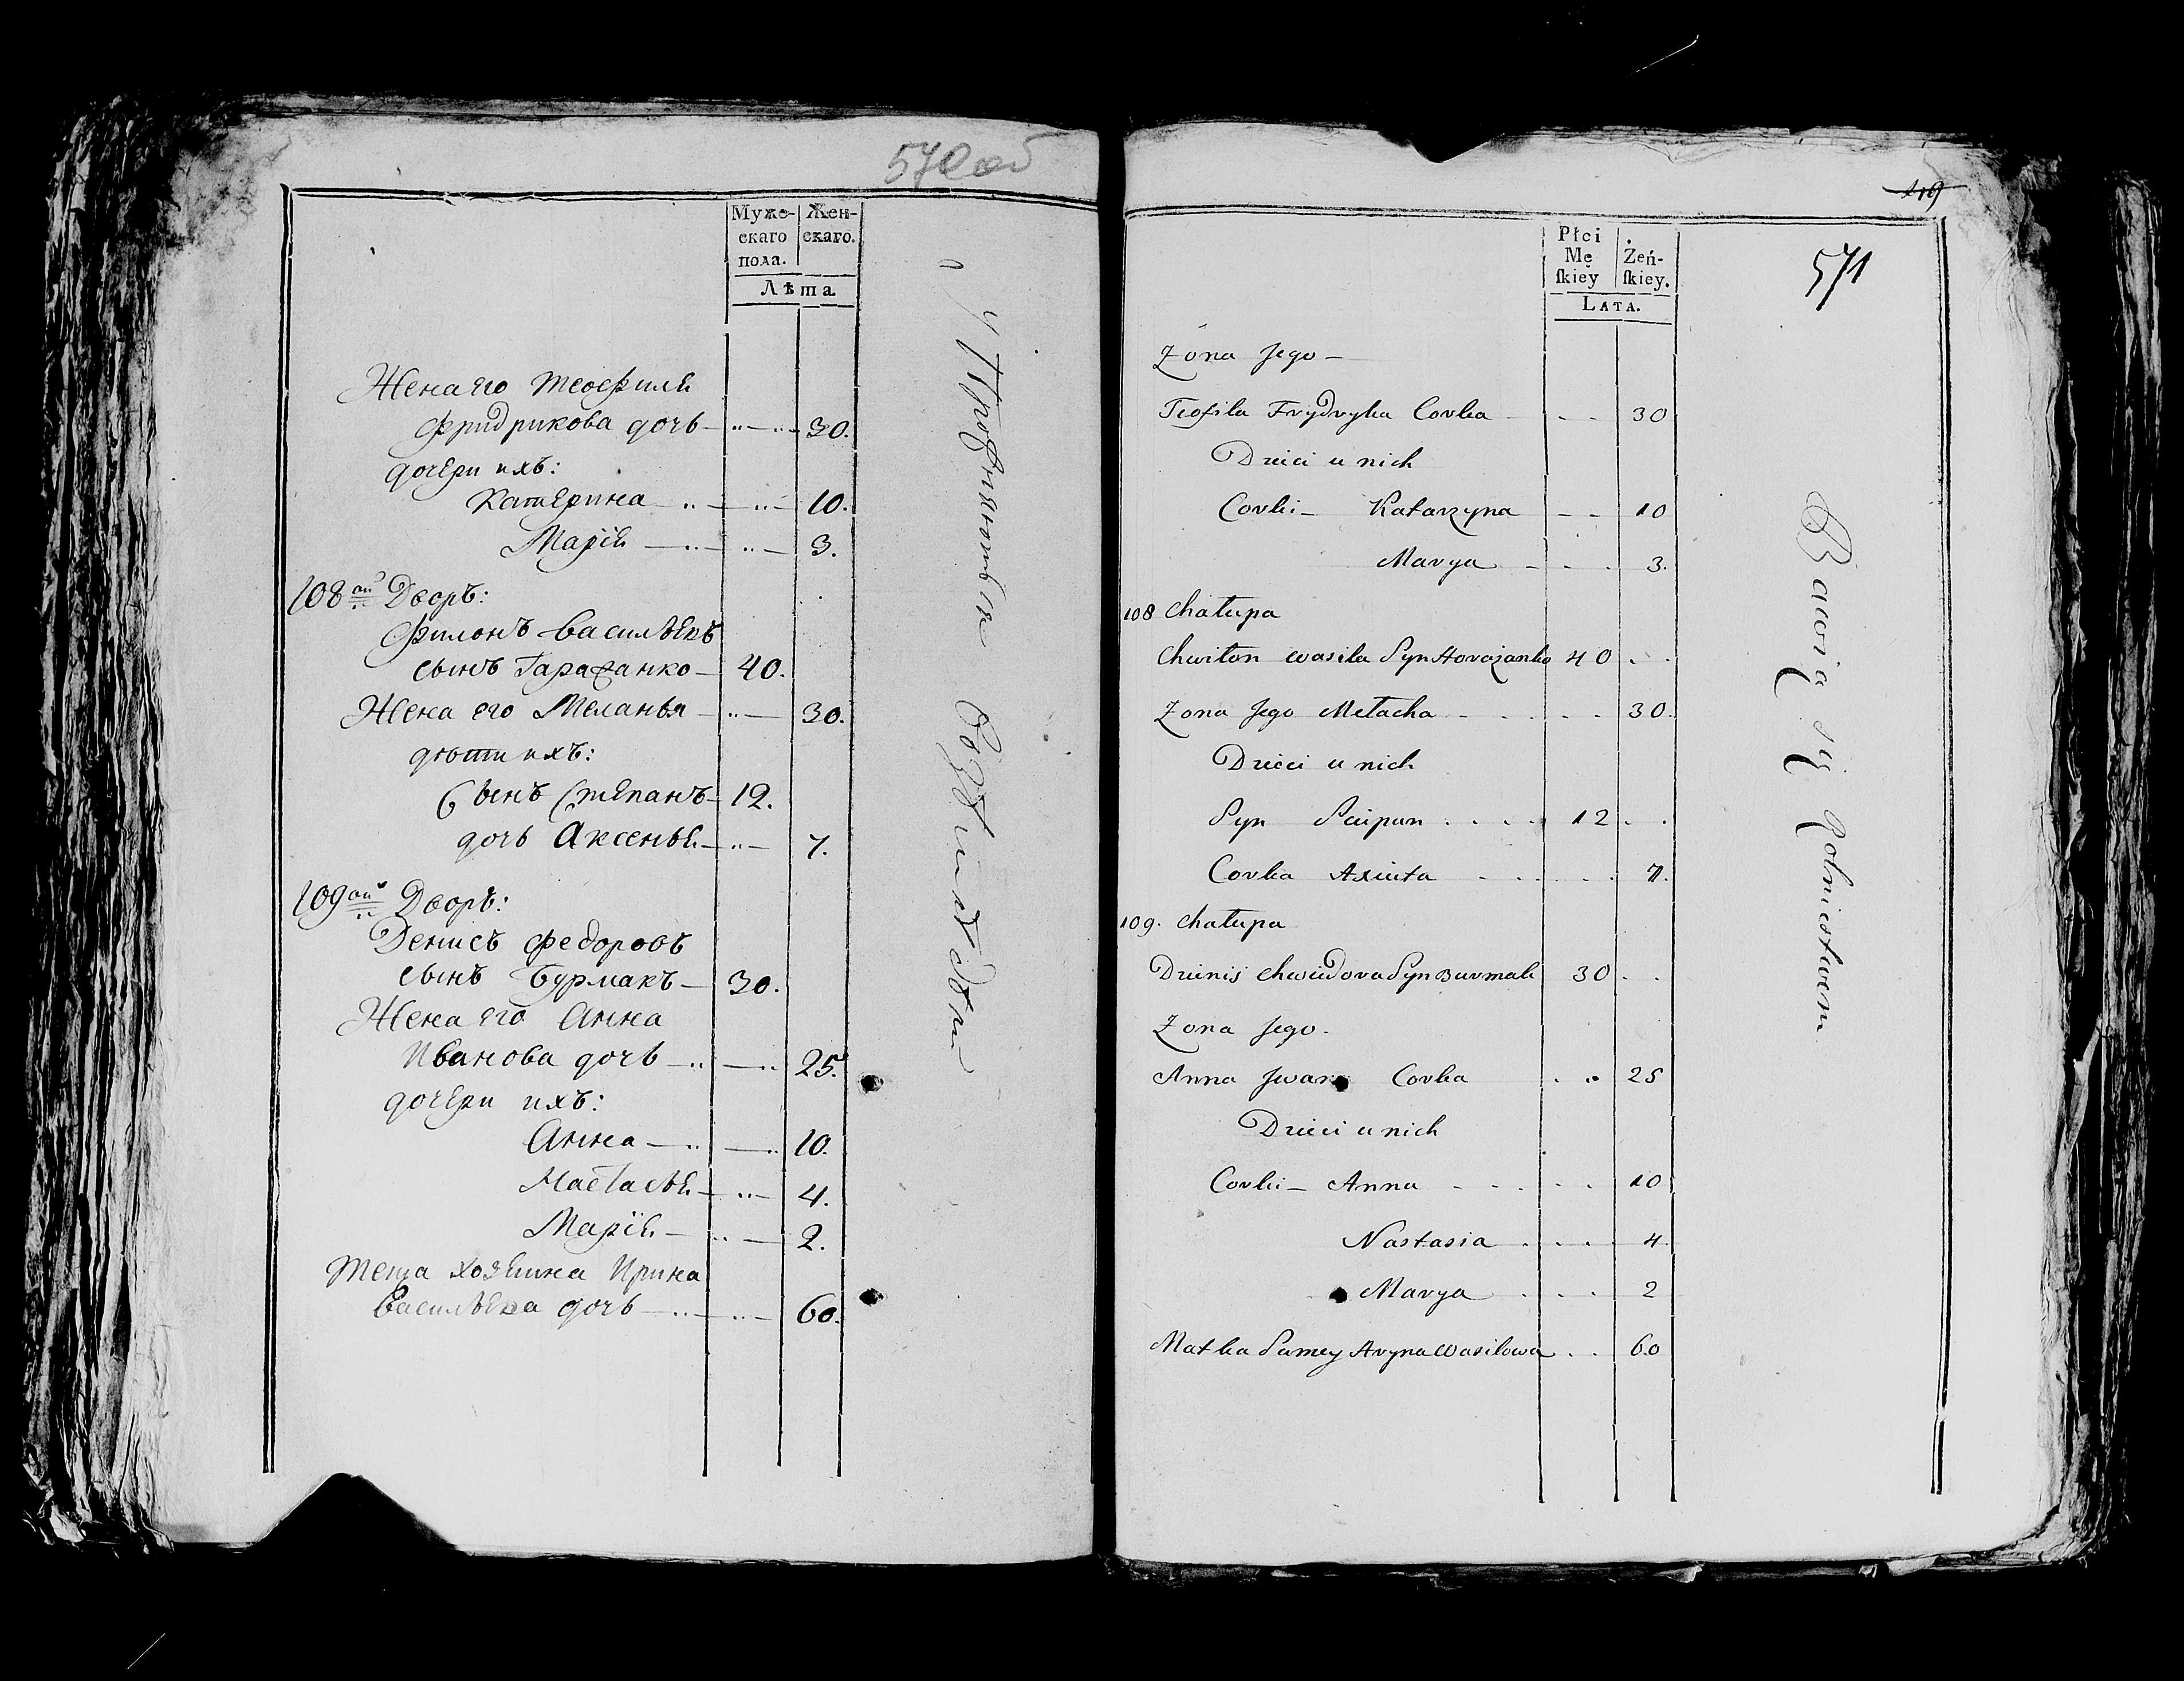 570 об
Муже-
скаго
пола.
Жен-
скаго.
Лѣта.
Жена его Теофиля
Фридрикова дочь 30.
дочери ихъ:
Катерина 10.
Марія 3.
108ой Дворъ:
Филонъ Васильевъ
сынъ Гаражанко 40.
Жена его Меланья 30.
дѣти ихъ:
Сынъ Степанъ 12.
дочь Аксенья 7.
109ой Дворъ:
Денисъ Федоровъ
сынъ Бурмакъ 30.
Жена его Анна
Иванова дочь 25.
дочери ихъ:
Анна 10.
Настасья 4.
Марія 2.
Теща хозяина Ирина
Васильева дочь 60.
119
571
Płci
Mę
ſkiey
Żeń-
ſkiey.
LATA.
Zona Jego
Teofila Frydryka Corka 30
Dzieci u nich
Corki Katarzyna 10
Marya 3.
108 Chałupa
Chwiłon Wasila Syn Horożanko 40
Zona Jego Melacha 30.
Dzieci u nich
Syn Sciepan 12
Corka Axiuta 7.
109. Chałupa
Dzienis Chwiedora Syn Burmak 30
Zona Jego.
Anna Jwana Corka 25
Dzieci u nich
Corki Anna 10
Nastasia 4
Marya 2
Matka Samey Aryna Wasilowa 60
Bawią się Rolnictwem